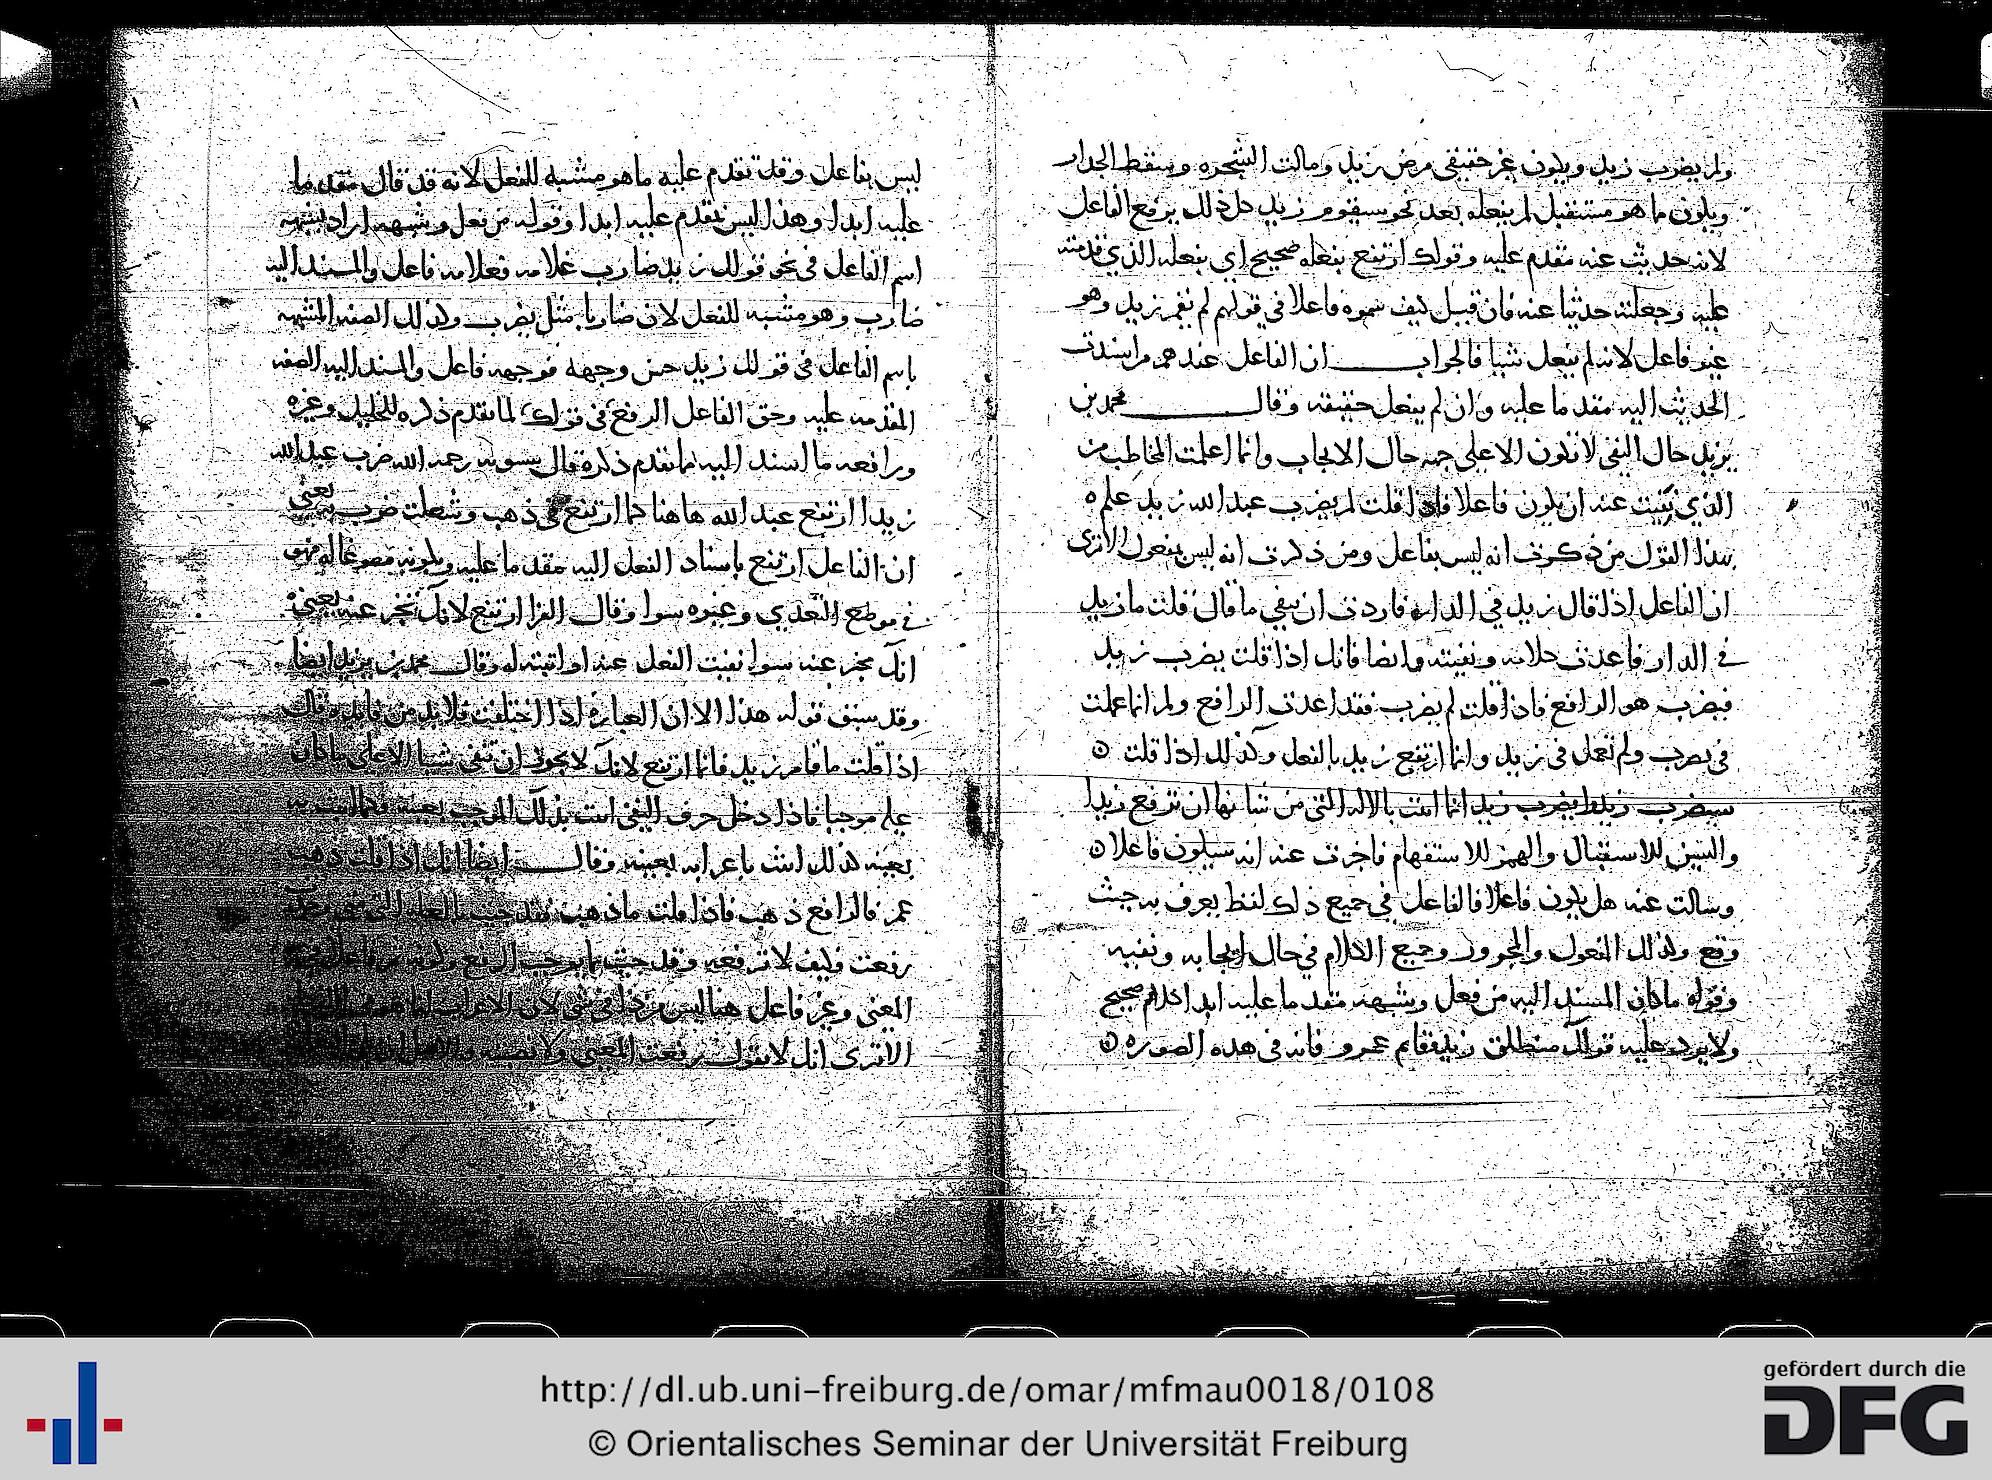 ولم يضرب زيد ويكون غير حقيقي مرض زيد ومالت الشجره وسقط الجدار
ويكون ما هو مستقبل لم يفعله بعد نحو سيقوم زيد كل ذلك يرفع الفاعل
لانه حديث عنه متقدم عليه وقولك ارتفع بفعله صحيح اي بفعله الذي قدمته
عليه وجعلته حديثا عنه فان قيل كيف سموه فاعلا في قولهم لم يقم زيد وهو
غير فاعل لانه لم يفعل شيا فالجواب ان الفاعل عندهم من اسندت
الحديث اليه مقدما عليه وان لم يفعل حقيقه وقال محمد بن
يزيد حال النفى لا تكون الا على جهه حال الايجاب وانما اعلمت المخاطب من
الذي نفيت عنه ان يكون فاعلا فاذا قلت لم يضرب عبد الله زيد علم
بهذا القول من ذكرت انه ليس بفاعل ومن ذكرت انه ليس بمفعول الا ترى
ان الفاعل اذا قال زيد في الدار فاردت ان تنفي ما قال قلت ما زيد
في الدار فاعدت كلامه ونفيته وايضا فانك اذا قلت يضرب زيد
فيضرب هو الرافع فاذا قلت لم يضرب فقد اعدت الرافع ولم انما عملت
في يضرب ولم تعمل في زيد وانما ارتفع زيد بالفعل وكذلك اذا قلت
سيضرب زيد وايضرب زيد انما اتت بالاله التي من شانها ان ترفع زيدا
والسين للاستقبال والهمز للاستفهام فاخبرت عنه انه سيكون فاعلا
وسالت عنه هل يكون فاعلا فالفاعل في جميع ذلك لفظ يعرف به حيث
وقع وكذلك المفعول والمجرور وجميع الكلام في حال ايجابه ونفيه
وقوله ما كان المسند اليه من فعل وشبهه مقدما عليه ابدا كلام صحيح
ولا يرد عليه قولك منطلق زيد فقام عمرو فانه في هذه الصوره
ليس بفاعل وقد تقدم عليه ما هو مشبه للفعل لانه قد قال مقدما
عليه ابدا وهذا ليس يقدم عليه ابدا وقوله من فعل وشبهه اراد بشبهه
اسم الفاعل في نحو قولك زيد ضارب غلامه فغلامه فاعل والمسند اليه
ضارب وهو مشبه للفعل لان ضاربا مثل يضرب وكذلك الصفه المشبهه
باسم الفاعل في قولك زيد حسن وجهه فوجهه فاعل والمسند اليه الصفه
المقدمه عليه وحق الفاعل الرفع في قولك لما تقدم ذكره للخليل وغيره
ورافعه ما اسند اليه لما تقدم ذكره قال سيبويه رحمه الله ضرب عبد الله
زيدا ارتفع عبد الله هاهنا كما ارتفع في ذهب وشغلت ضرب به يعني
ان الفاعل ارتفع باسناد الفعل اليه مقدما عليه وبكونه مصوغا له فهو
في موضع التعدي وغيره سوا وقال الفرا ارتفع لانك تخبر عنه يعني
انك تخبر عنه سوا نفيت الفعل عنه او اثبته له وقال محمد بن يزيد ايضا
وقد سبق قوله هذا الا ان العباره اذا اختلفت فلا بد من فايده قال
اذا قلت ما قام زيد فانما ارتفع لانك لا يجوز ان تنفي شيا الا على ما كان
عليه موجبا فاذا دخل حرف النفي اتيت بذلك الموجب بعينه
بعينه كذلك اتيت باعرابه بعينه وقال ايضا انك اذا قلت ذهب
عمر فالرافع ذهب فاذا قلت ما ذهب فقد جيت بالعله التي
رفعت فكيف لا ترفعه وقد جيت بما يوجب الرفع
المعنى وغير فاعل هنا ليس من هذا في شي لان الاعراب
الا ترى انك لا تقول رفعت المعنى ولا نصبته
http://dl.ub.uni-freiburg.de/omar/mfmau0018/0108
© Orientalisches Seminar der Universität Freiburg
gefördert durch die
DFG